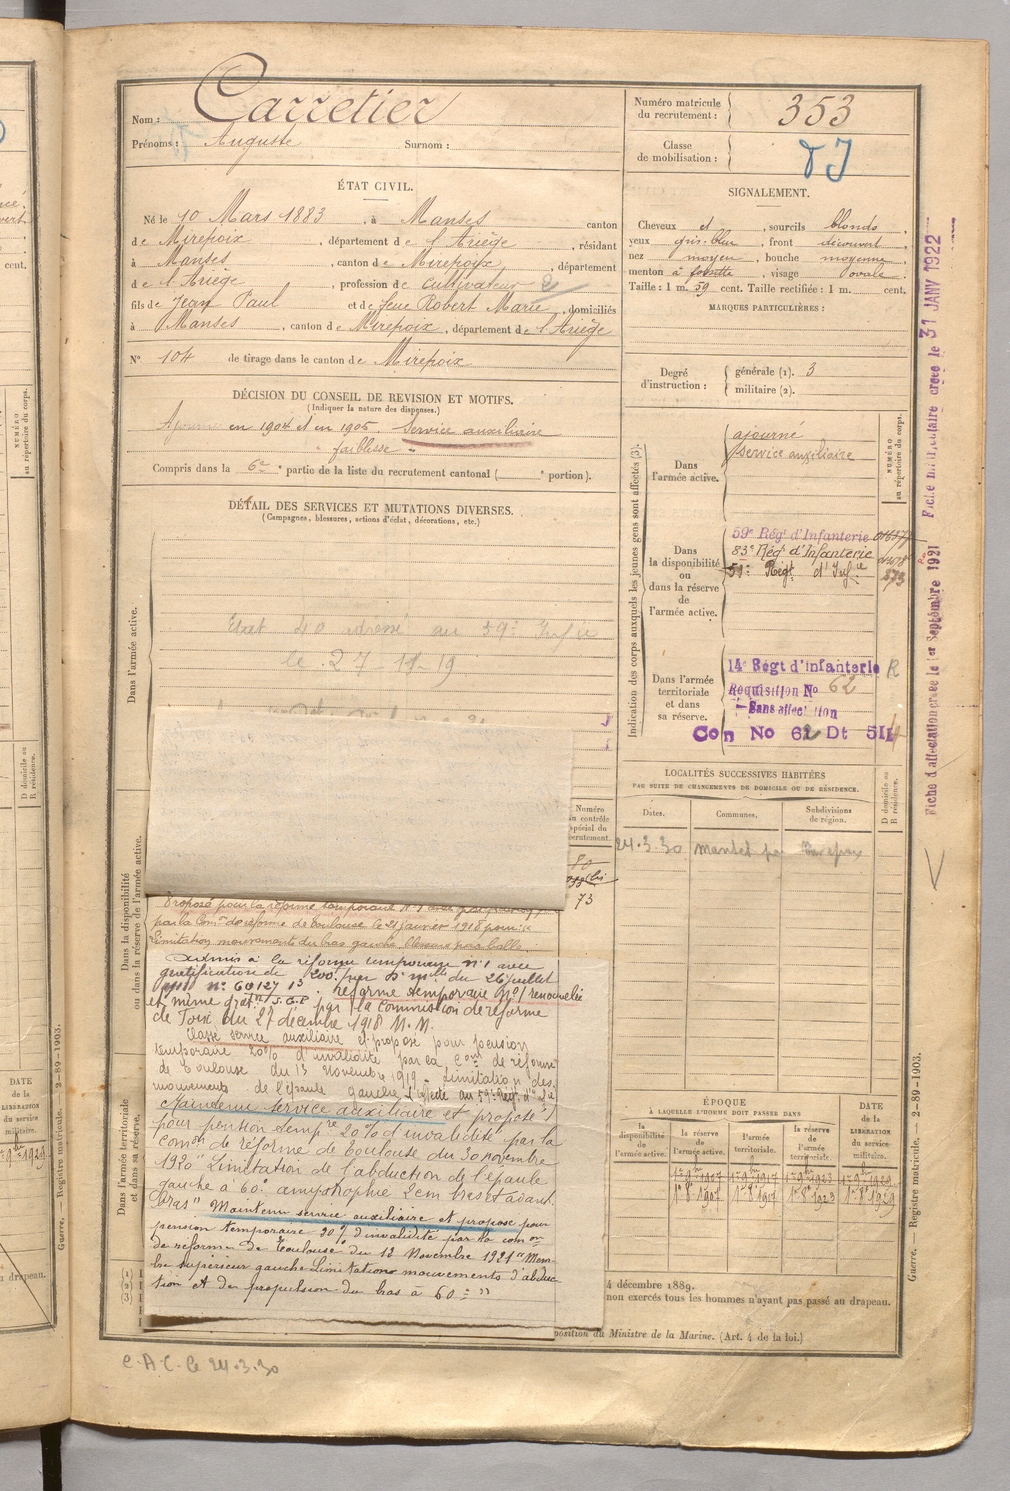 Nom : Carretier
Prénoms : Auguste Surnom :
Numéro matricule du recrutement : 353
Classe de mobilisation :
ÉTAT CIVIL.
Né le 10 Mars 1883, à Manses canton
de Mirepoix, département de l'Ariège, résidant
à Manses, canton de Mirepoix, département
de l'Ariège, profession de Cultivateur 2
fils de Jean Paul et de feue Robert Marie, domiciliés
à Manses, canton de Mirepoix, département de l'Ariège
N° 104 de tirage dans le canton de Mirepoix
SIGNALEMENT.
Cheveux et, sourcils blonds,
yeux gris-bleu, front découvert,
nez moyen, bouche moyenne,
menton à fossette, visage ovale.
Taille : 1 m. 59 cent. Taille rectifiée : 1 m. cent.
MARQUES PARTICULIÈRES :
Degré d'instruction : générale (1). 3
militaire (2).
DÉCISION DU CONSEIL DE REVISION ET MOTIFS.
(Indiquer la nature des dispenses.)
Ajourné en 1904 et en 1905. Service auxiliaire
faiblesse
Compris dans la 6e partie de la liste du recrutement cantonal ( e portion).
DÉTAIL DES SERVICES ET MUTATIONS DIVERSES.
(Campagnes, blessures, actions d'éclat, décorations, etc.)
Dans l'armée active.
adressé au 59e Infie
le 27-11-19
Dans la disponibilité
ou dans la réserve de l'armée active.
Dans l'armée territoriale
et dans sa réserve.
Numéro
au contrôle
spécial du
recrutement.
73
Proposé pour la réforme temporaire N°1 avec
par la Comon de réforme de Toulouse le 21 Janvier 1918 pour :
Limitation mouvements du bras gauche. Blessure par balle.
Admis à la réforme temporaire n°1 avec
gratification de 200f par Don mlle du 26 juillet
1918 n° 60127 13. réforme temporaire N°1 renouvelée
et même grat.on par la Commission de réforme
de Foix du 27 décembre 1918 M.M.
Classé service auxiliaire et proposé pour pension
temporaire 20% d'invalidité par la Con de réforme
de Toulouse du 13 Novembre 1919. Limitation des
mouvements de l'épaule gauche. Affecté au 59e Régt d'Infie
Maintenu service auxiliaire et proposé
pour pention tempre 20% d'invalidité par la
Comon de réforme de Toulouse du 30 novembre
1920 "Limitation de l'abduction de l'épaule
gauche à 60° amyotrophie 2cm bras et avant
bras" Maintenu service auxiliaire et proposé pour
pension temporaire 20% d'invalidité par la comon
de réforme de Toulouse du 12 Novembre 1921 "Mem-
bre supérieur gauche Limitation mouvements d'abduc
tion et de propulsion du bras à 60°"
Indication des corps auxquels les jeunes gens sont affectés (3).
NUMÉRO
au répertoire du corps.
Dans l'armée active.
ajourné
Service auxiliaire
Dans la disponibilité ou dans la réserve de l'armée active.
59e Régt d'Infanterie
83e Régt d'Infanterie
59e Régt d'Infie 573
Dans l'armée territoriale et dans sa réserve.
14e Régt d'infanterie R
Requisition No 62
Sans affectation
Con No 62 Dt 5II
LOCALITÉS SUCCESSIVES HABITÉES
PAR SUITE DE CHANGEMENTS DE DOMICILE OU DE RÉSIDENCE.
Dates. Communes. Subdivisions de région. D domicile ou R résidence.
24.3.30
ÉPOQUE
À LAQUELLE L'HOMME DOIT PASSER DANS
la disponibilité de l'armée active. la réserve de l'armée active. l'armée territoriale. la réserve de l'armée territoriale. DATE de la LIBÉRATION du service militaire.
1er 9bre 1907 1er 9bre 1917 1er 9bre 1923 1er 9bre 1929
1er 8bre 1907 1er 8bre 1917 1er 8bre 1923 1er 8bre 1929
4 décembre 1889.
non exercés tous les hommes n'ayant pas passé au drapeau.
position du Ministre de la Marine. (Art. 4 de la loi.)
C.A.C. le 24.3.30
Fiche d'affectation créée le 1er Septembre 1921 Fiche matriculaire créée le 31 JANV 1922
Guerre. — Registre matricule. — 2-89-1903.
Guerre. — Registre matricule. — 2-89-1903.